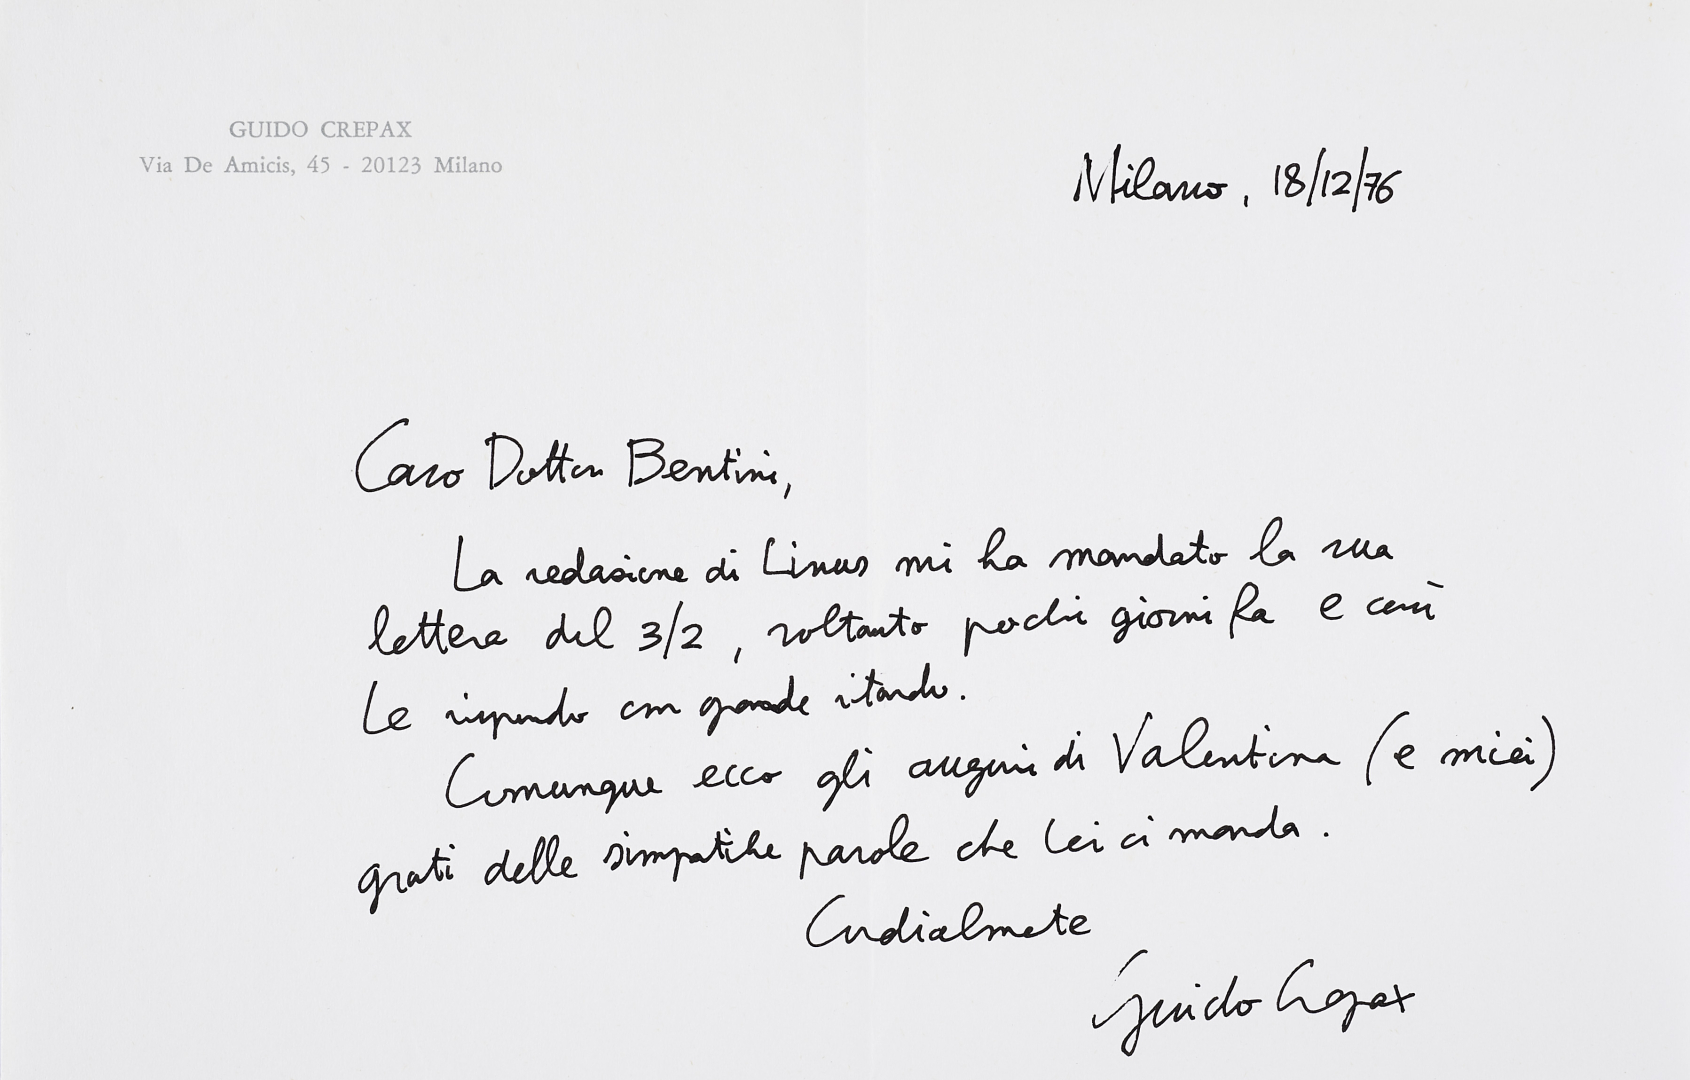 GUIDO CREPAX
Via De Amicis, 45 - 20123 Milano
Milano, 18/12/76
Caro Dottor Bentini,
La redazione di Linus mi ha mandato la sua
lettera del 3/2, soltanto pochi giorni fa e così
Le rispondo con grande ritardo.
Comunque ecco gli auguri di Valentina (e miei)
grati delle simpatiche parole che Lei ci manda.
Cordialmente
Guido Crepax